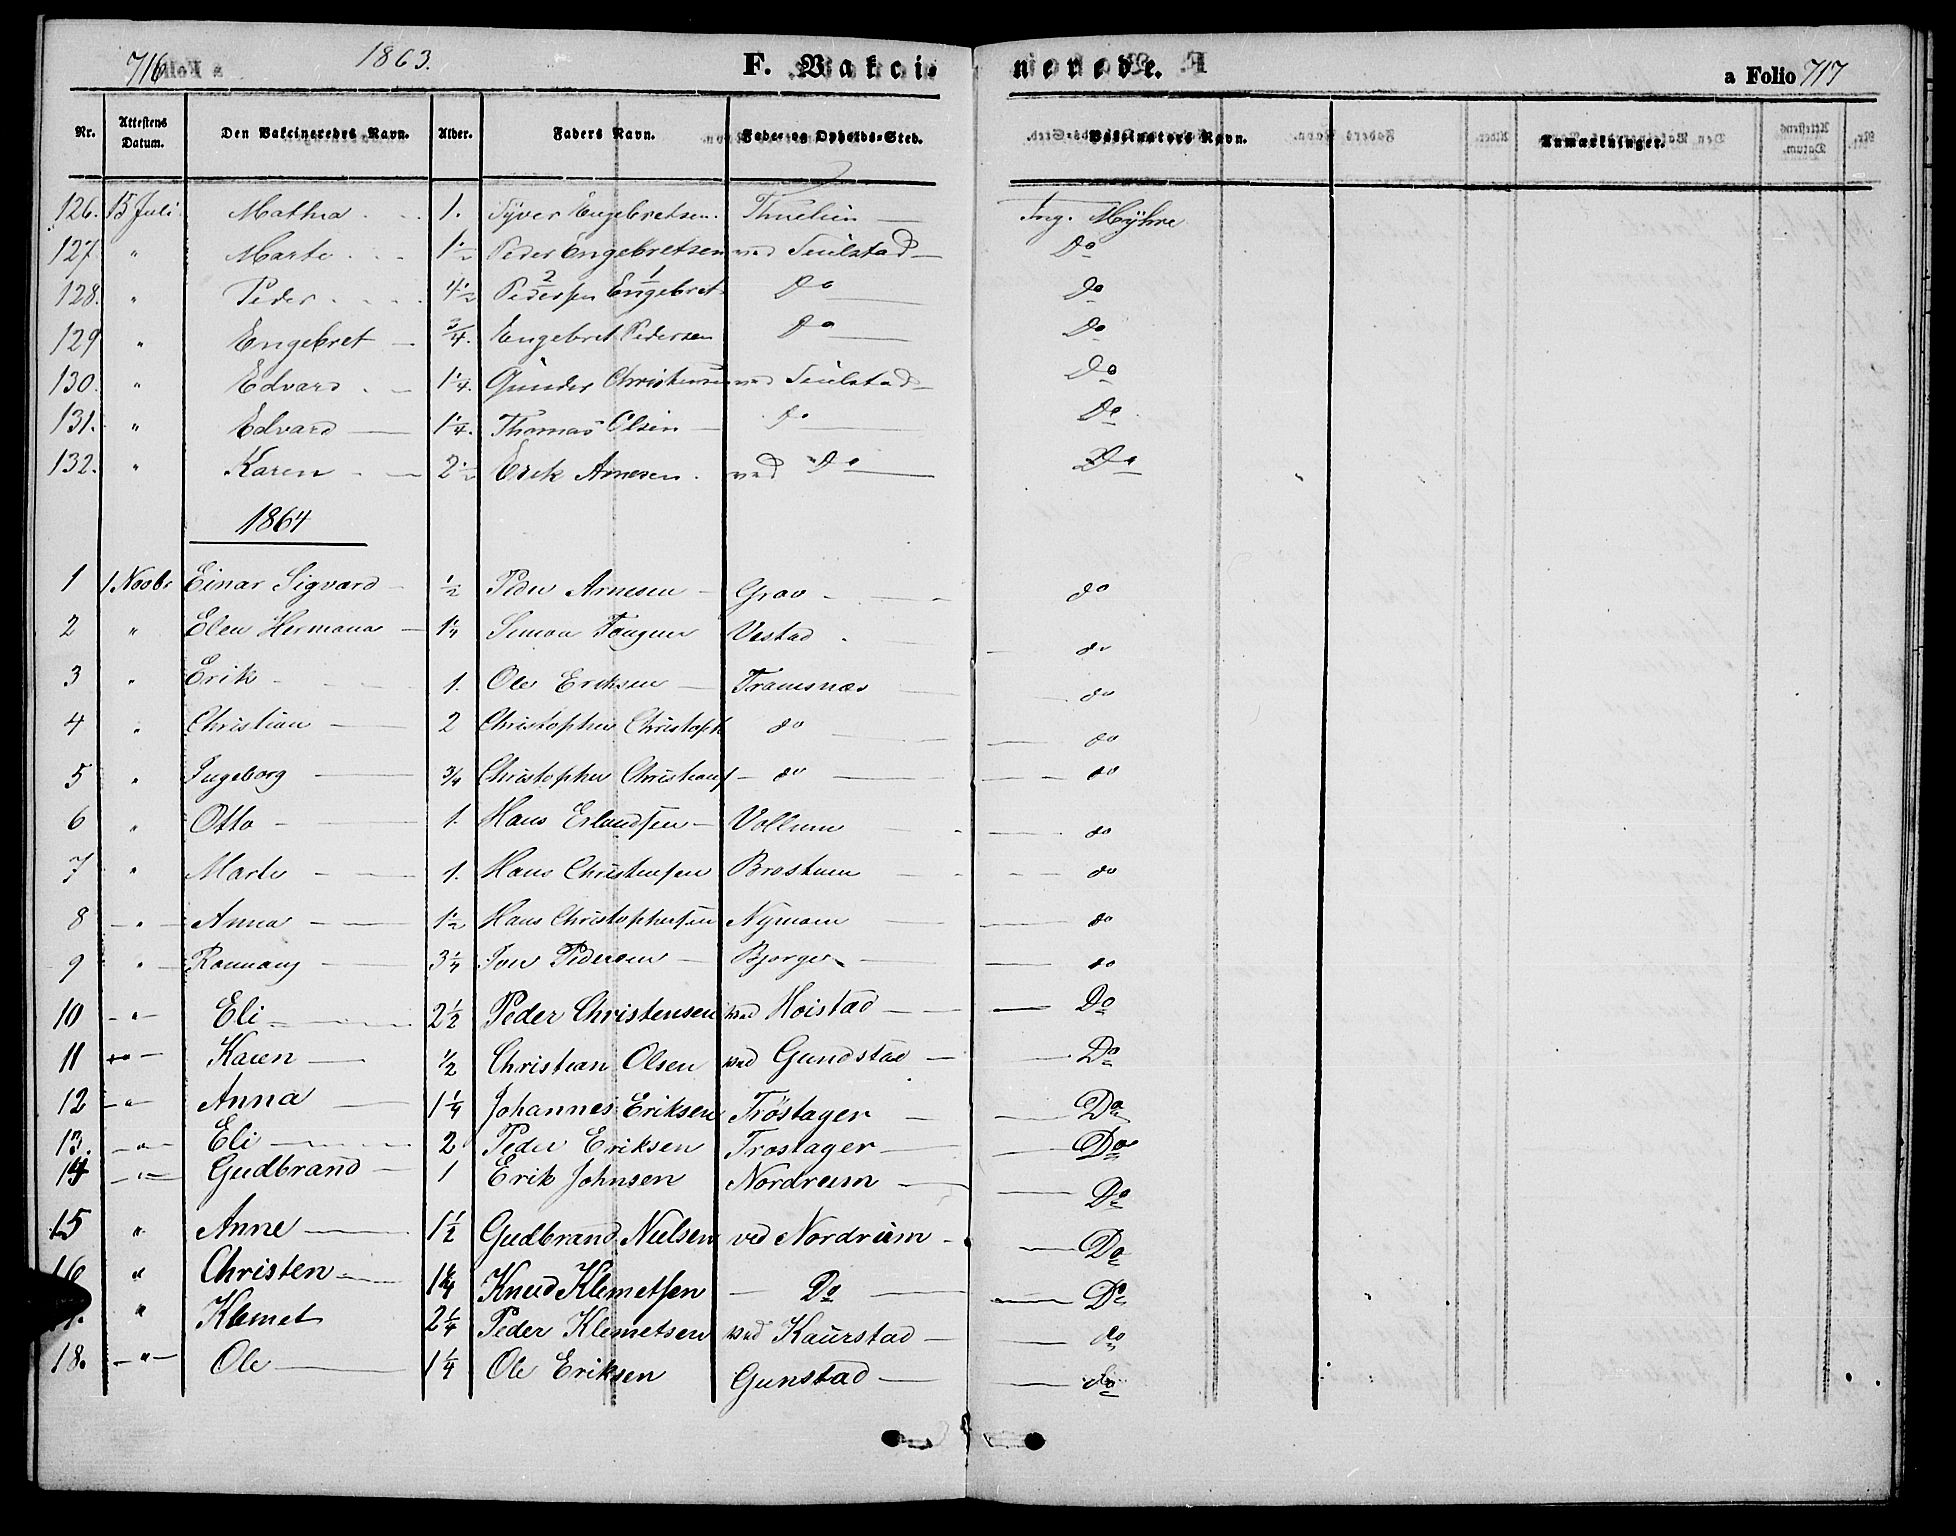 716 1863. F. Vakci- nerede. a Folio 717
Nr. Attestens Datum. Den Vakcineredes Navn. Alder. Faders Navn. Føde- og Opholds-Sted. Vakcinators Navn. Anmærkninger.
126. 15 Juli Mathea 1. Syver Engebretsen. Ing. Myhre
127. " Marte 1 1/2 Peder Engebretsen ved Do
128. " Peder 4 1/2 Pedersen Engebret Do Do
129 " Engebret 3/4. Engebret Pedersen Do Do
130. " Edvard 1 1/4. Gunder Christensen ved Do
131. " Edvard 1 1/4. Thomas Olsen do Do
132. " Karen 2 1/2 Erik Arnesen. ved Do Do
1864
1 1 Novbr Einar Sigvard 1/2 Peder Arnesen Grav do
2 " Elen Hermana 1 1/4 Simon Vestad do
3 " Erik 1. Ole Eriksen Tramsnæs do
4 " Christian 2 Christopher Christoph do do
5 " Ingeborg 3/4 Christopher Christians do do
6 " Otto 1. Hans Erlandsen Vollum do
7 " Marte 1. Hans Christensen Brostuen do
8 " Anna 1 1/2 Hans Christophersen Nymoen do
9 " 3 1/4 Iver Pedersen Bjørger do
10 " Eli 2 1/2 Peder Christensen ved Hoistad Do
11 " Karen 1/2 Christian Olsen ved Gundstad Do
12 " Anna 1 1/4 Johannes Eriksen Trøstager Do
13. " Eli 2 Peder Eriksen Trostager Do
14 " Gudbrand 1 Erik Johnsen Nordrum Do
15 " Anne 1 1/2 Gudbrand Nielsen ved Nordrum Do
16 " Christen 1 1/4 Knud Klemetsen Do Do
" Klemet 2 1/4 Peder Klemetsen ved Kaurstad do
18. " Ole 1 1/4 Ole Eriksen Gunstad do